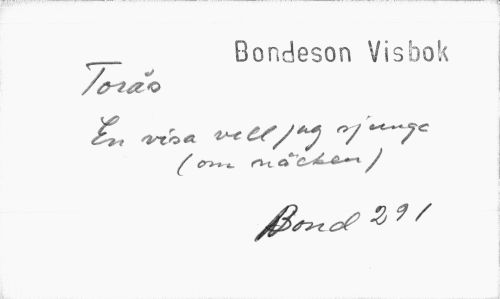 Bondeson Visbok
Torås
En visa vill jag sjunga
(om näcken)
Bond 291